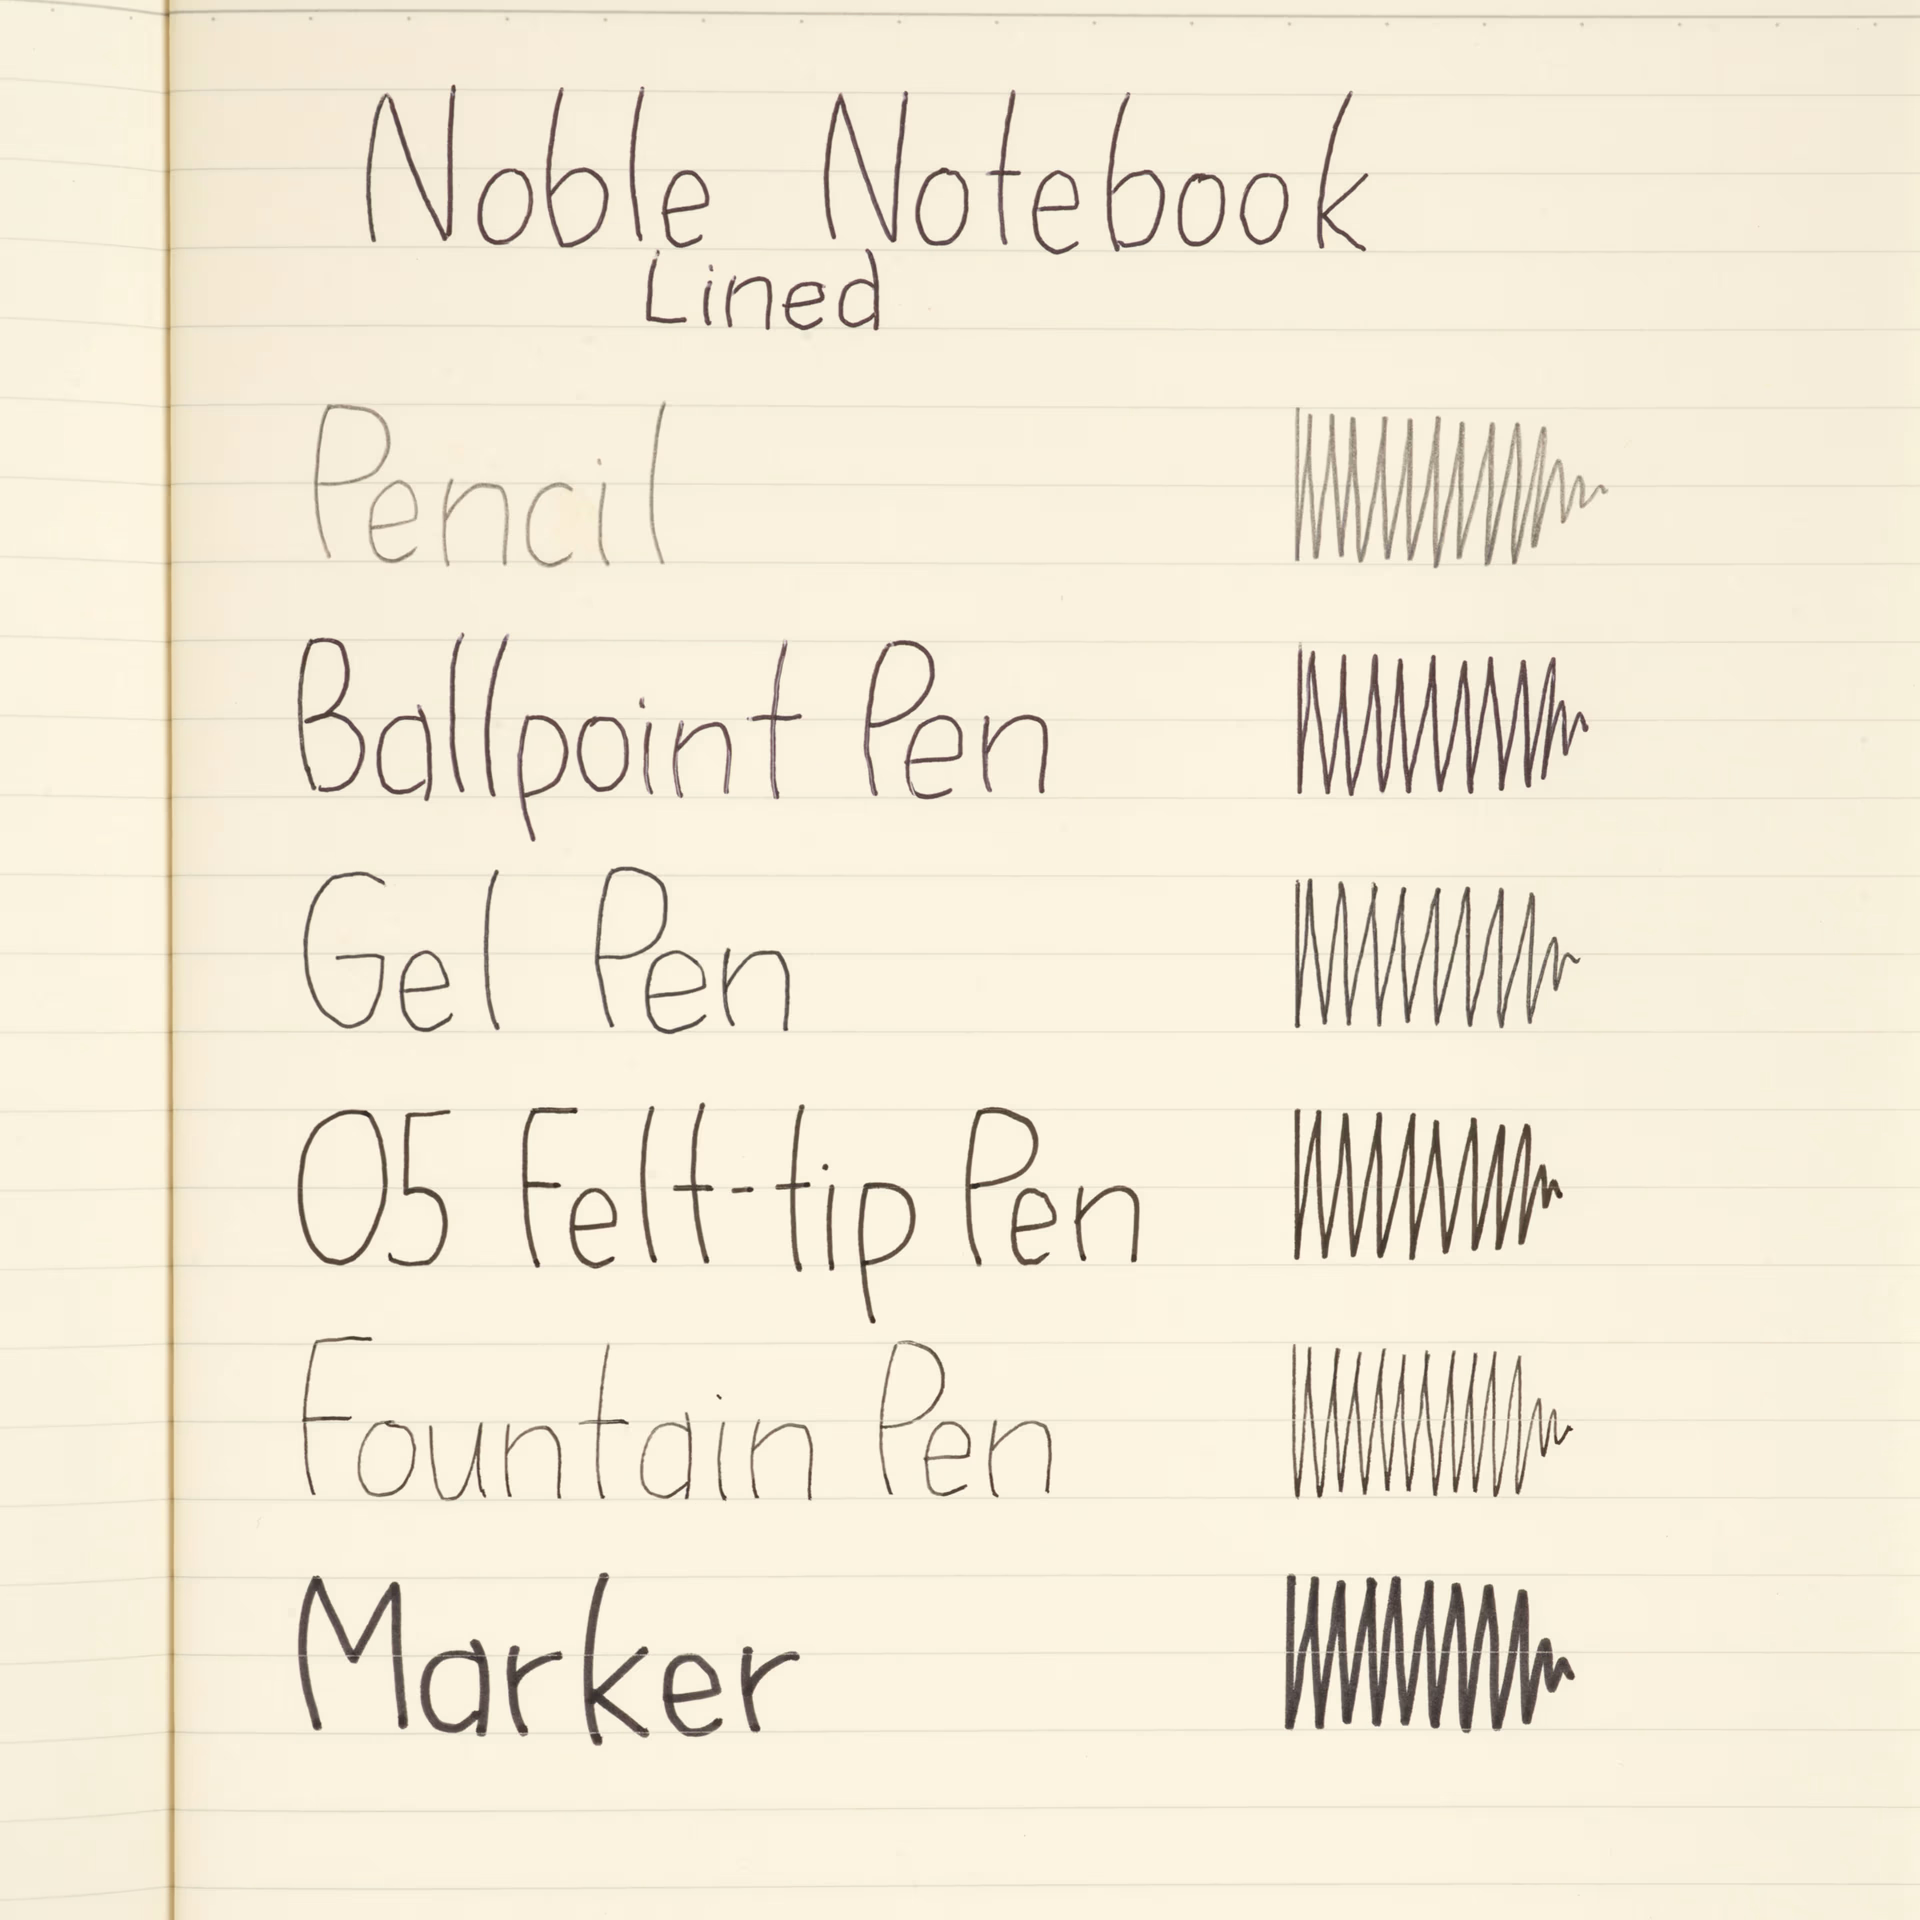 Noble Notebook
Lined
Pencil
Ballpoint Pen
Gel Pen
05 Felt-tip Pen
Fountain Pen
Marker